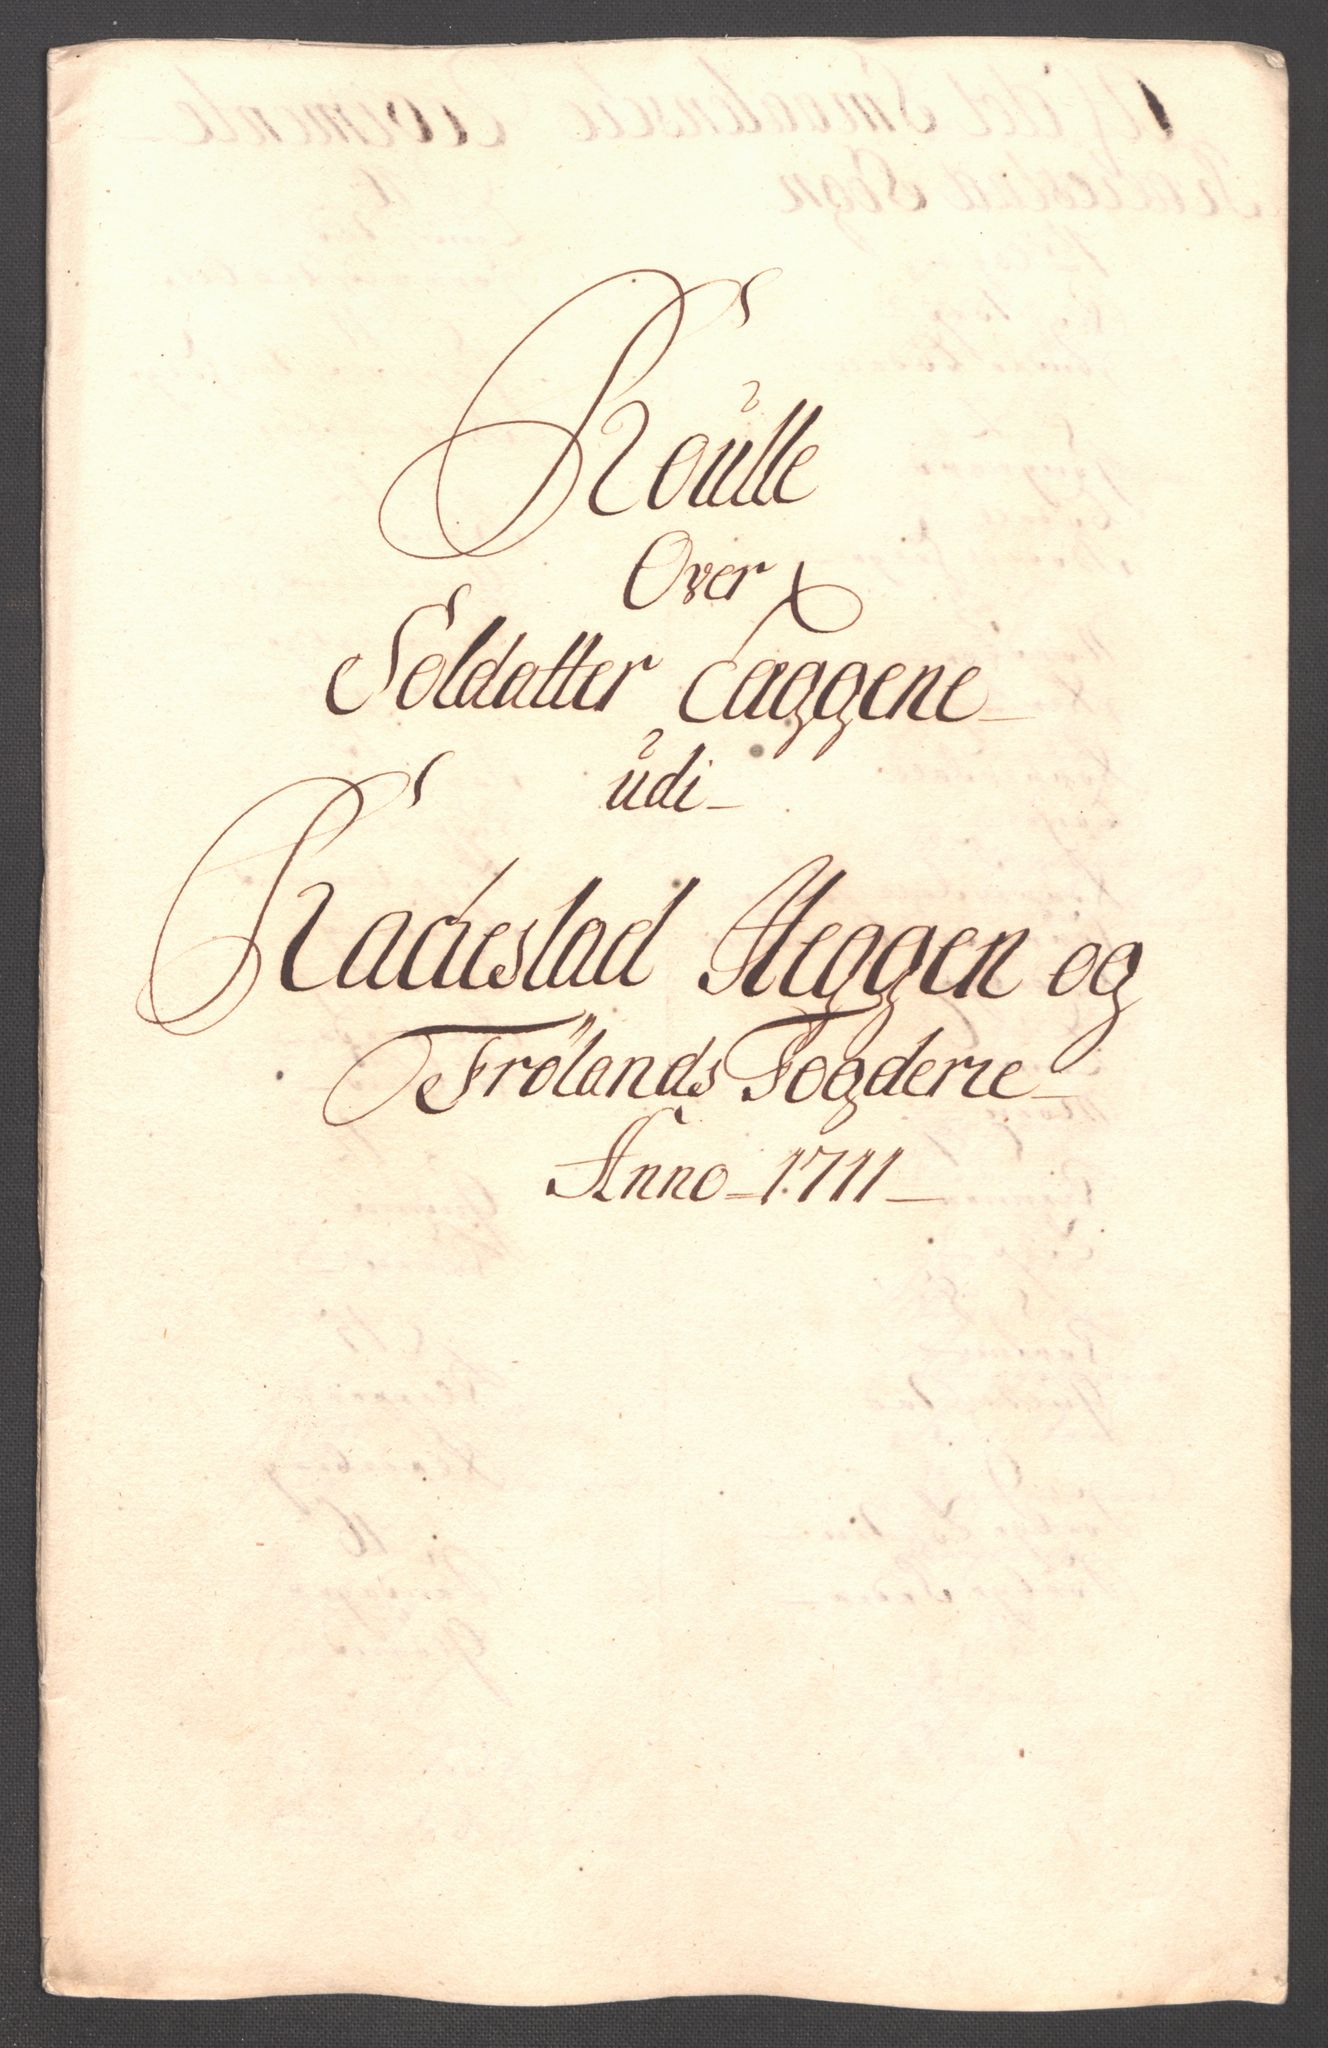 Roulle
Over
Soldatter Læggene
udi
Rackestad Heggen og
Frölands Fogderie
Anno 1711